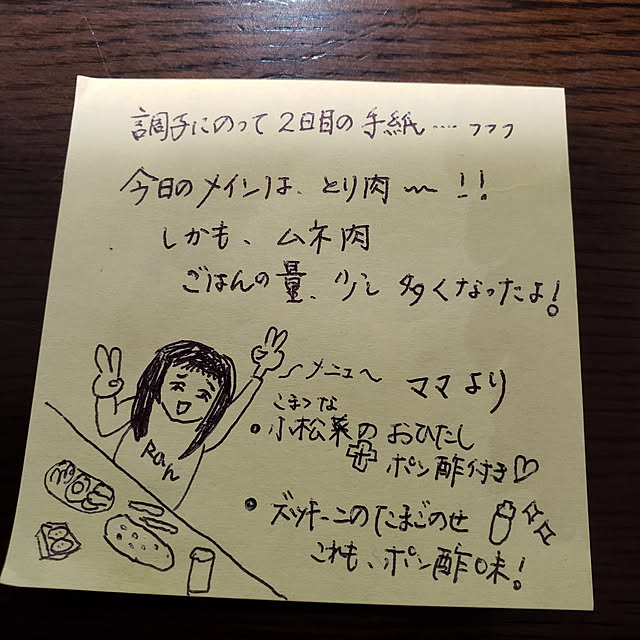 調子にのって2日目の手紙…‥フフフ
今日のメインは、とり肉〜〜!!
しかも、ムネ肉
ごはんの量、少し多くなったよ!
〜メニュー〜
ママより
こまつな
・小松菜のおひたし
ポン酢付き♡
・ズッキーニのたまごのせ
これも、ポン酢味!
Ran